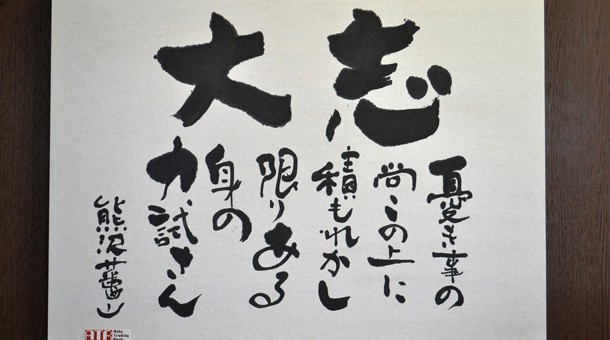 大志
憂き事の
尚この上に
積もれかし
限りある
身の
力試さん
熊沢蕃山